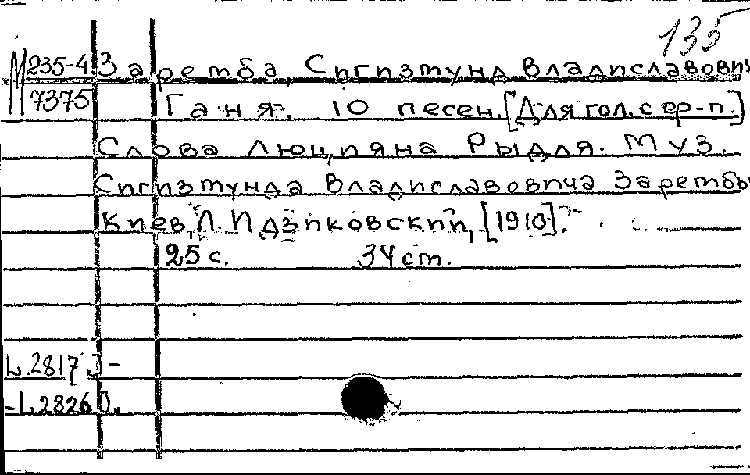 135
М 235-4 Заремба, Сигизмунд Владиславович
7375 Ганя. 10 песен. [Для гол. с ф-п.]
Слова Люцияна Рыдля. Муз.
Сигизмунда Владиславовича Зарембы
Киев, Л. Идзиковский, [1910].
25 с. 34 см.
L.2817 J -
- L.2826 J.